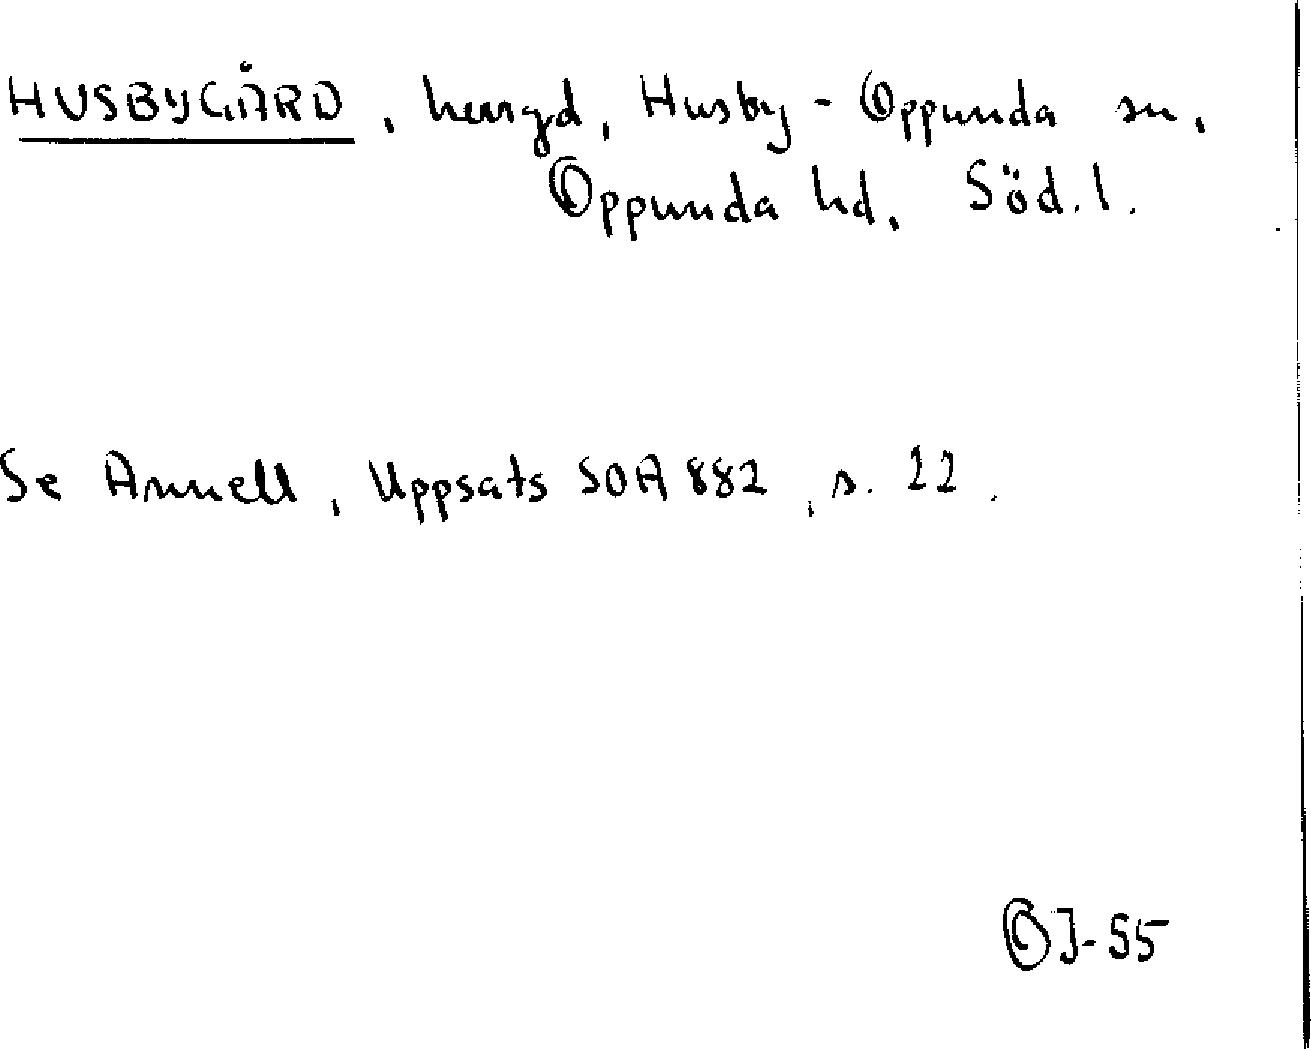 HUSBYGÅRD, herrgd, Husby-Oppunda sn,
Oppunda hd, Söd.l.
Se Annell, Uppsats SOA 882, s. 22.
OJ-55